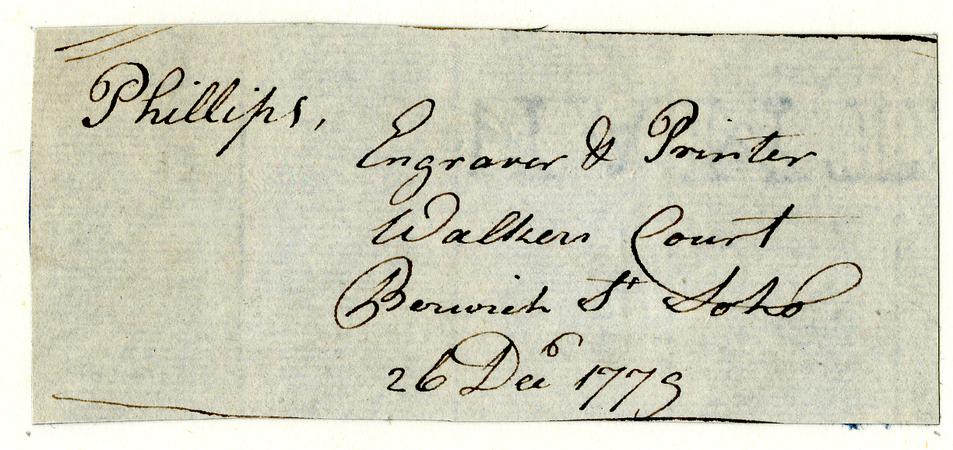 Phillips,
Engraver & Printer
Walkers Court
Berwick St Soho
26 Decb 1779